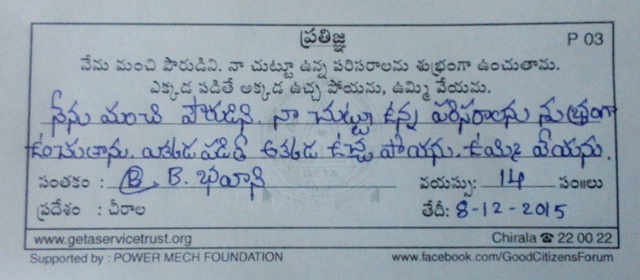 ప్రతిజ్ఞ
P 03
నేను మంచి పౌరుడిని. నా చుట్టూ ఉన్న పరిసరాలను శుభ్రంగా ఉంచుతాను.
ఎక్కడ పడితే అక్కడ ఉచ్చ పోయను, ఉమ్మి వేయను.
నేను మంచి పౌరుడిని. నా చుట్టూ ఉన్న పరిసరాలను శుభ్రంగా
ఉంచుతాను. ఎక్కడ పడితే అక్కడ ఉచ్చ పోయను. ఉమ్మి వేయను.
సంతకం : B B. భవాని వయస్సు: 14 సం॥లు
ప్రదేశం : చీరాల తేదీ: 8-12-2015
www.getaservicetrust.org Chirala ☎ 22 00 22
Supported by : POWER MECH FOUNDATION www.facebook.com/GoodCitizensForum